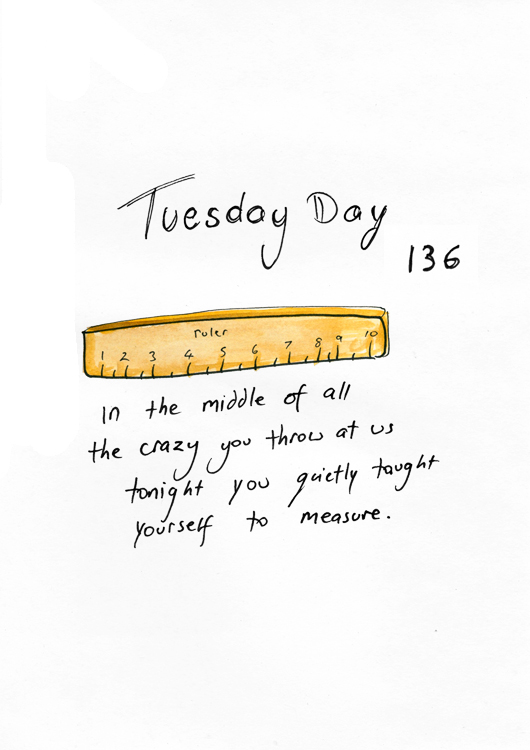 Tuesday Day
136
ruler
1 2 3 4 5 6 7 8 9 10
In the middle of all
the crazy you throw at us
tonight you quietly taught
yourself to measure.